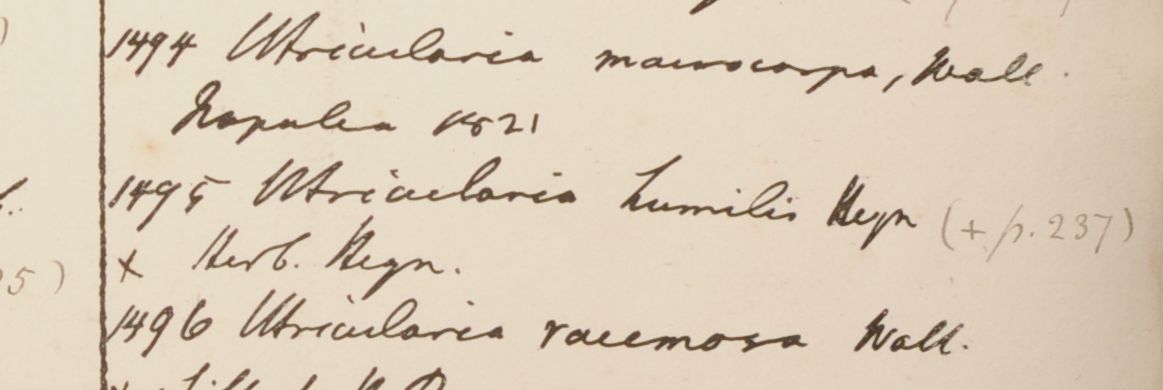 1494 Utricularia macrocarpa, Wall.
Napalia 1821
1495 Utricularia humilis Heyn (+ p. 237)
x Herb. Heyn.
5)
1496 Utricularia racemosa Wall.